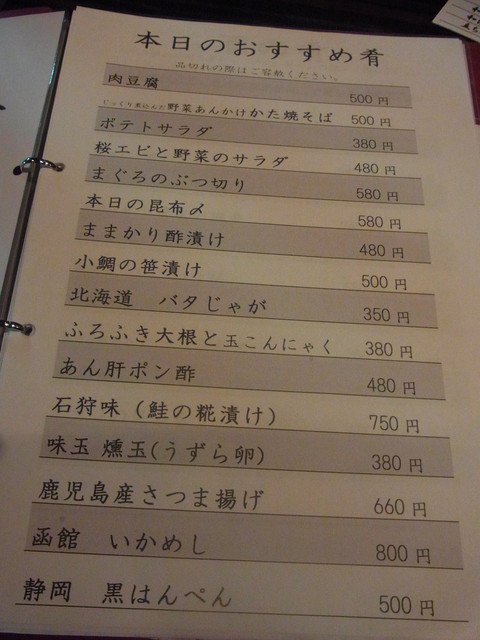 本日のおすすめ肴
品切れの際はご容赦ください。
肉豆腐 500円
じっくり煮込んだ野菜あんかけかた焼そば 500円
ポテトサラダ 380円
桜エビと野菜のサラダ 480円
まぐろのぶつ切り 580円
本日の昆布〆 580円
ままかり酢漬け 480円
小鯛の笹漬け 500円
北海道 バタじゃが 350円
ふろふき大根と玉こんにゃく 380円
あん肝ポン酢 480円
石狩味(鮭の糀漬け) 750円
味玉 燻玉(うずら卵) 380円
鹿児島産さつま揚げ 660円
函館 いかめし 800円
静岡 黒はんぺん 500円